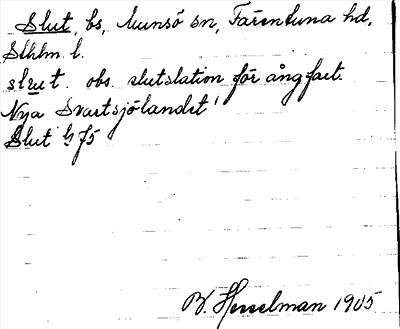 Slut, bs, Munsö sn, Färentuna hd,
Sthlm l.
slut. obs. slutstation för ångfart.
Nya Svartsjölandet
Slut G 75
B. Hesselman 1905